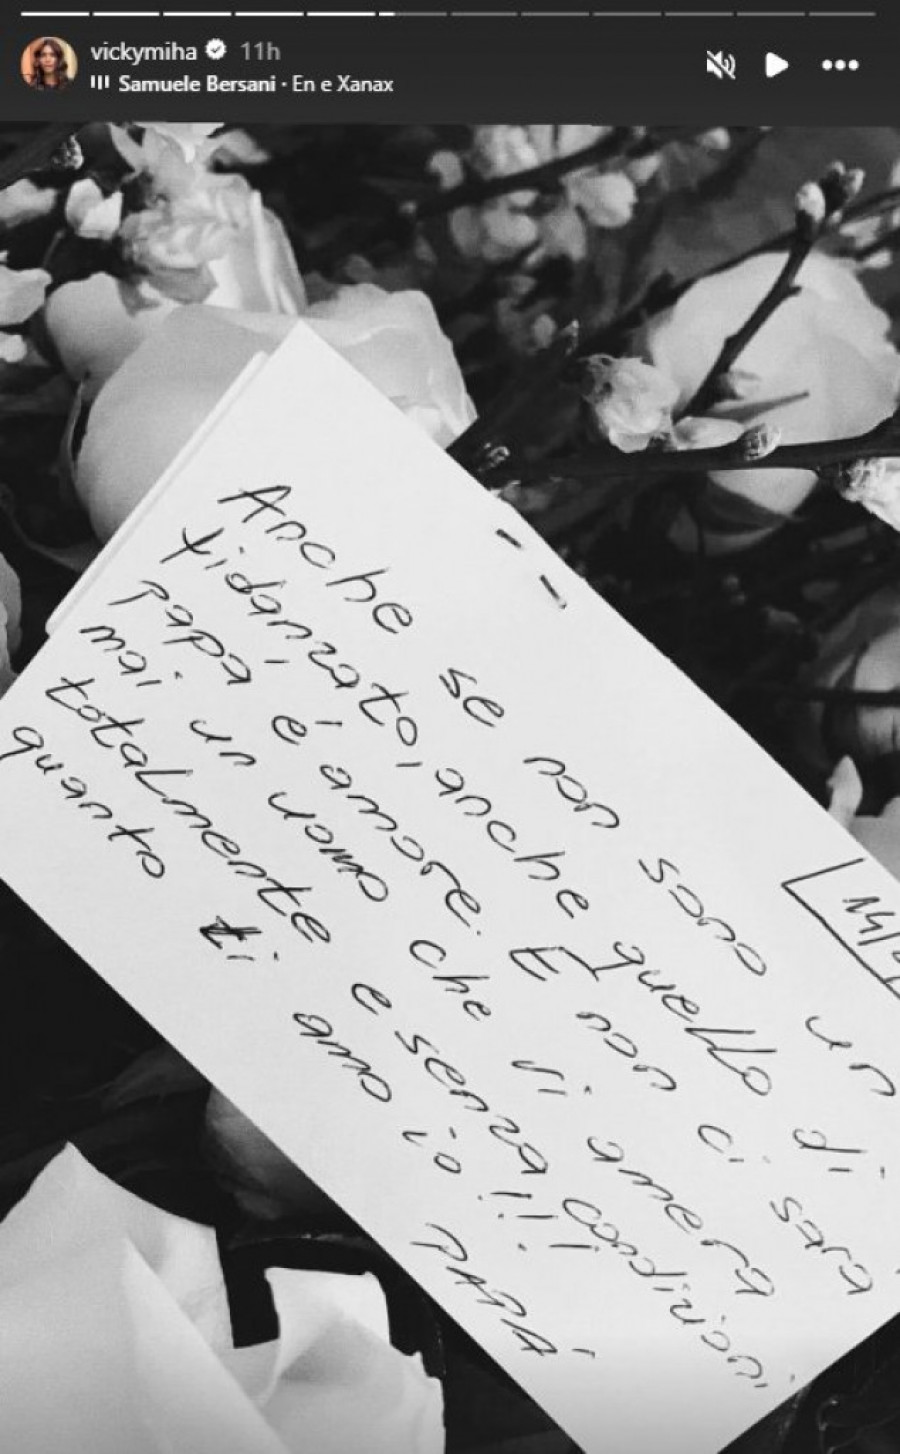 vickymiha 11h
Samuele Bersani · En e Xanax
14/2
Anche se non sono un
fidanzato, anche quello di
papà è amore. E non ci sarà
mai un uomo che vi amerà
totalmente e senza condizioni
quanto ti amo io!!
PAPÀ